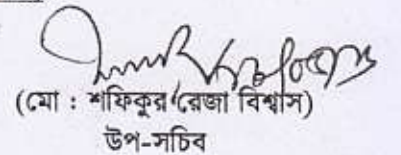 (মো : শফিকুর রেজা বিশ্বাস)
উপ-সচিব